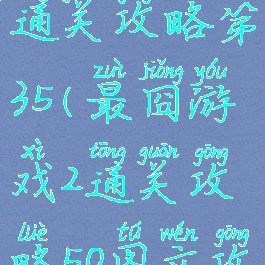 通关攻略第
zuì jiǒng yóu
35(最囧游
xì tōng guān gōng
戏2通关攻
lüè tú wén gōng
略50图文攻